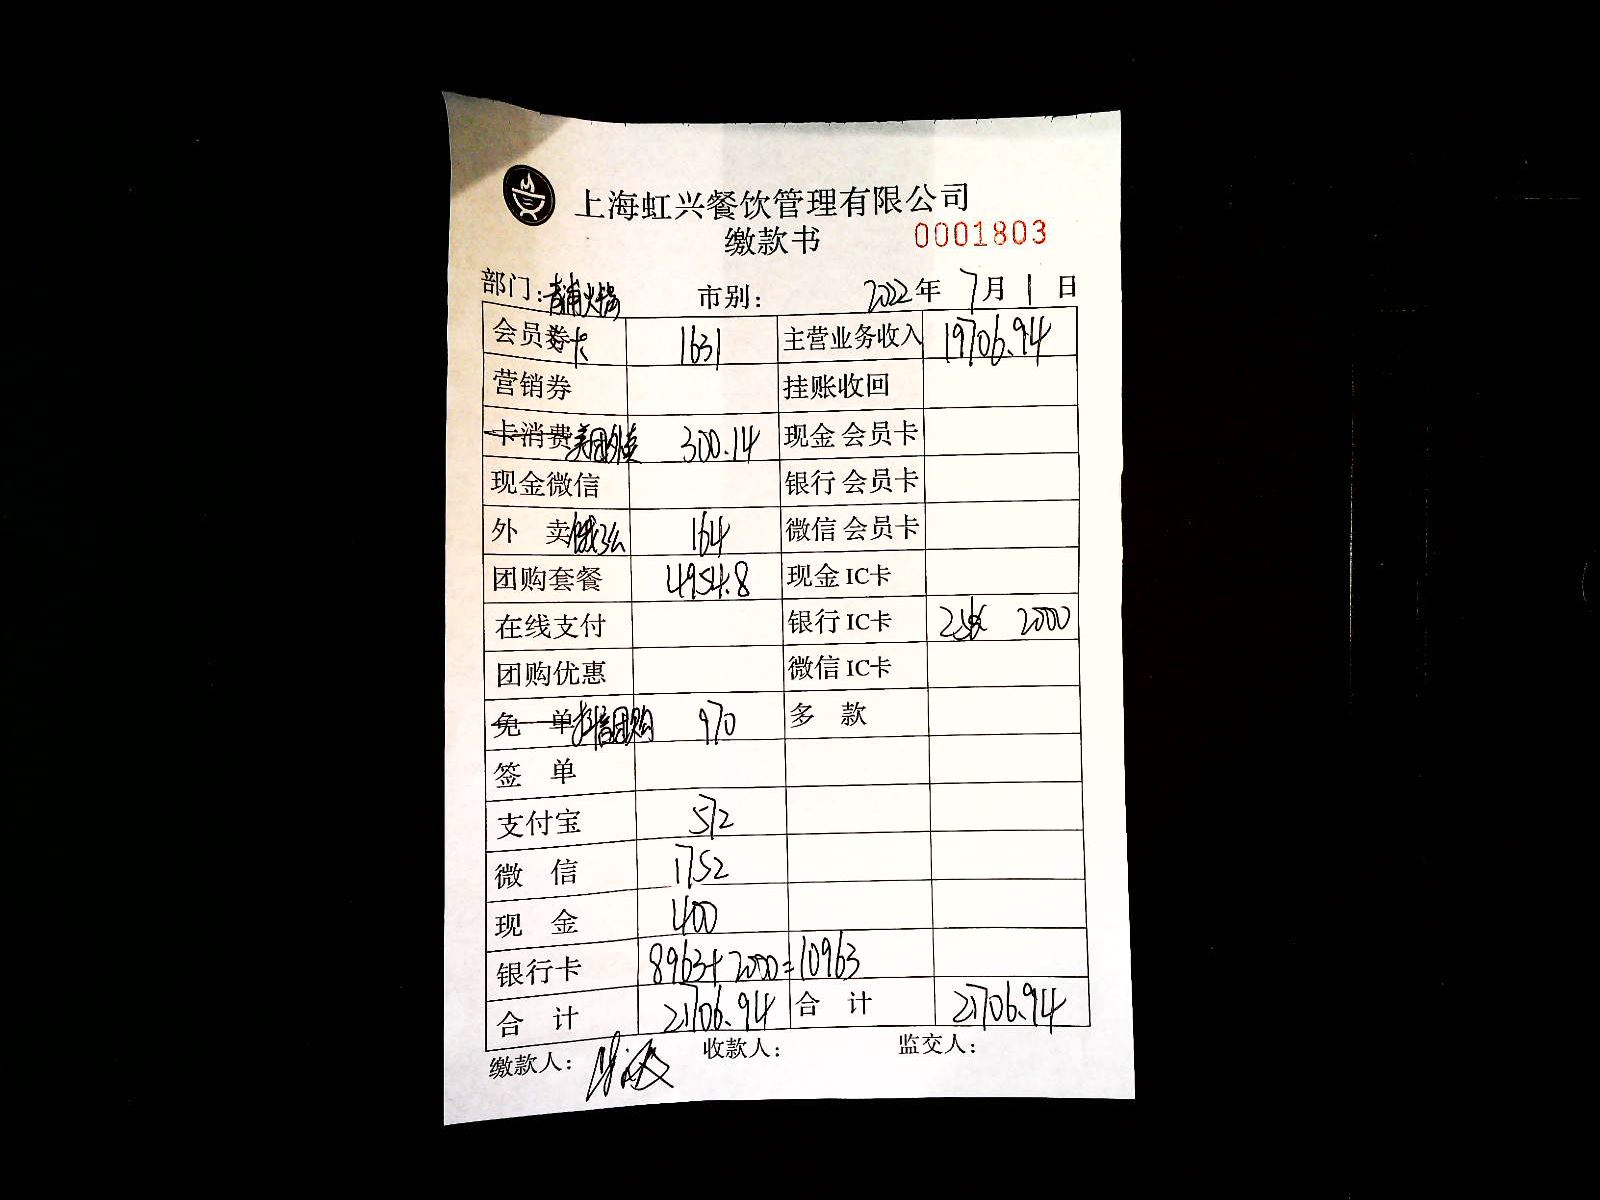 上海虹兴餐饮管理有限公司
缴款书 0001803
部门：青浦火锅 市别： 2022年 7月 1日
会员卡 1631 主营业务收入 19706.94
营销券 挂账收回
卡消费 美团外卖 300.14 现金会员卡
现金微信 银行会员卡
外 卖 饿了么 164 微信会员卡
团购套餐 4954.8 现金IC卡
在线支付 银行IC卡 2000
团购优惠 微信IC卡
免 单 抖音团购 970 多 款
签 单
支付宝 572
微 信 1752
现 金 400
银行卡 8963+2000=10963
合 计 21706.94 合 计 21706.94
缴款人： 收款人： 监交人：